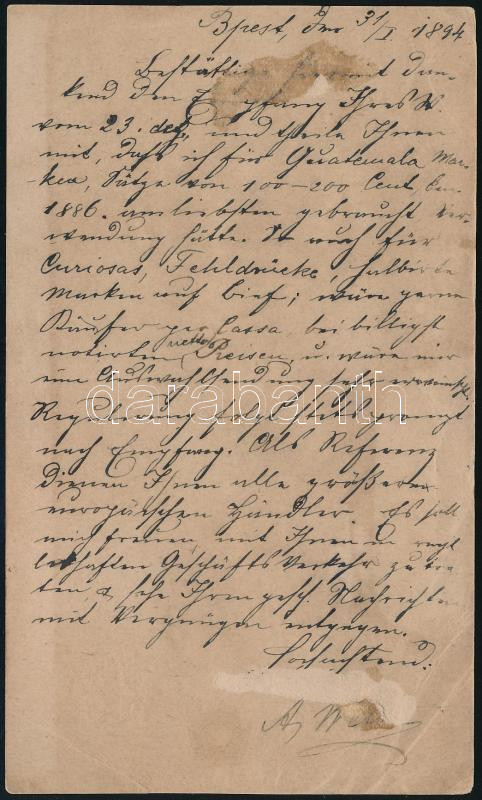 Bpest, den 31/I 1894
Bestättige hiermit dan-
kend den Empfang Ihres W.
vom 23. dez, und theile Ihnen
mit, daß ich für Guatemala Mar-
ken, Sätze von 100–200 Cent,
1886. am liebsten gebraucht Ver-
wendung hätte. So auch für
Curiosas, Fehldrücke, halbirte
Marken auf Brief; wäre gerne
Käufer per Cassa bei billigst
notirten netto Preisen, u. wäre mir
eine Auswahlsendung sehr erwünscht,
Regulierung folgt stets prompt
nach Empfang. Als Referenz
dienen Ihnen alle größeren
europäischen Händler. Es soll
mich freuen, mit Ihnen in recht
lebhaften Geschäfts Verkehr zu tre-
ten & sehe Ihren gesch. Nachrichten
mit Vergnügen entgegen.
Hochachtend:
darabanth